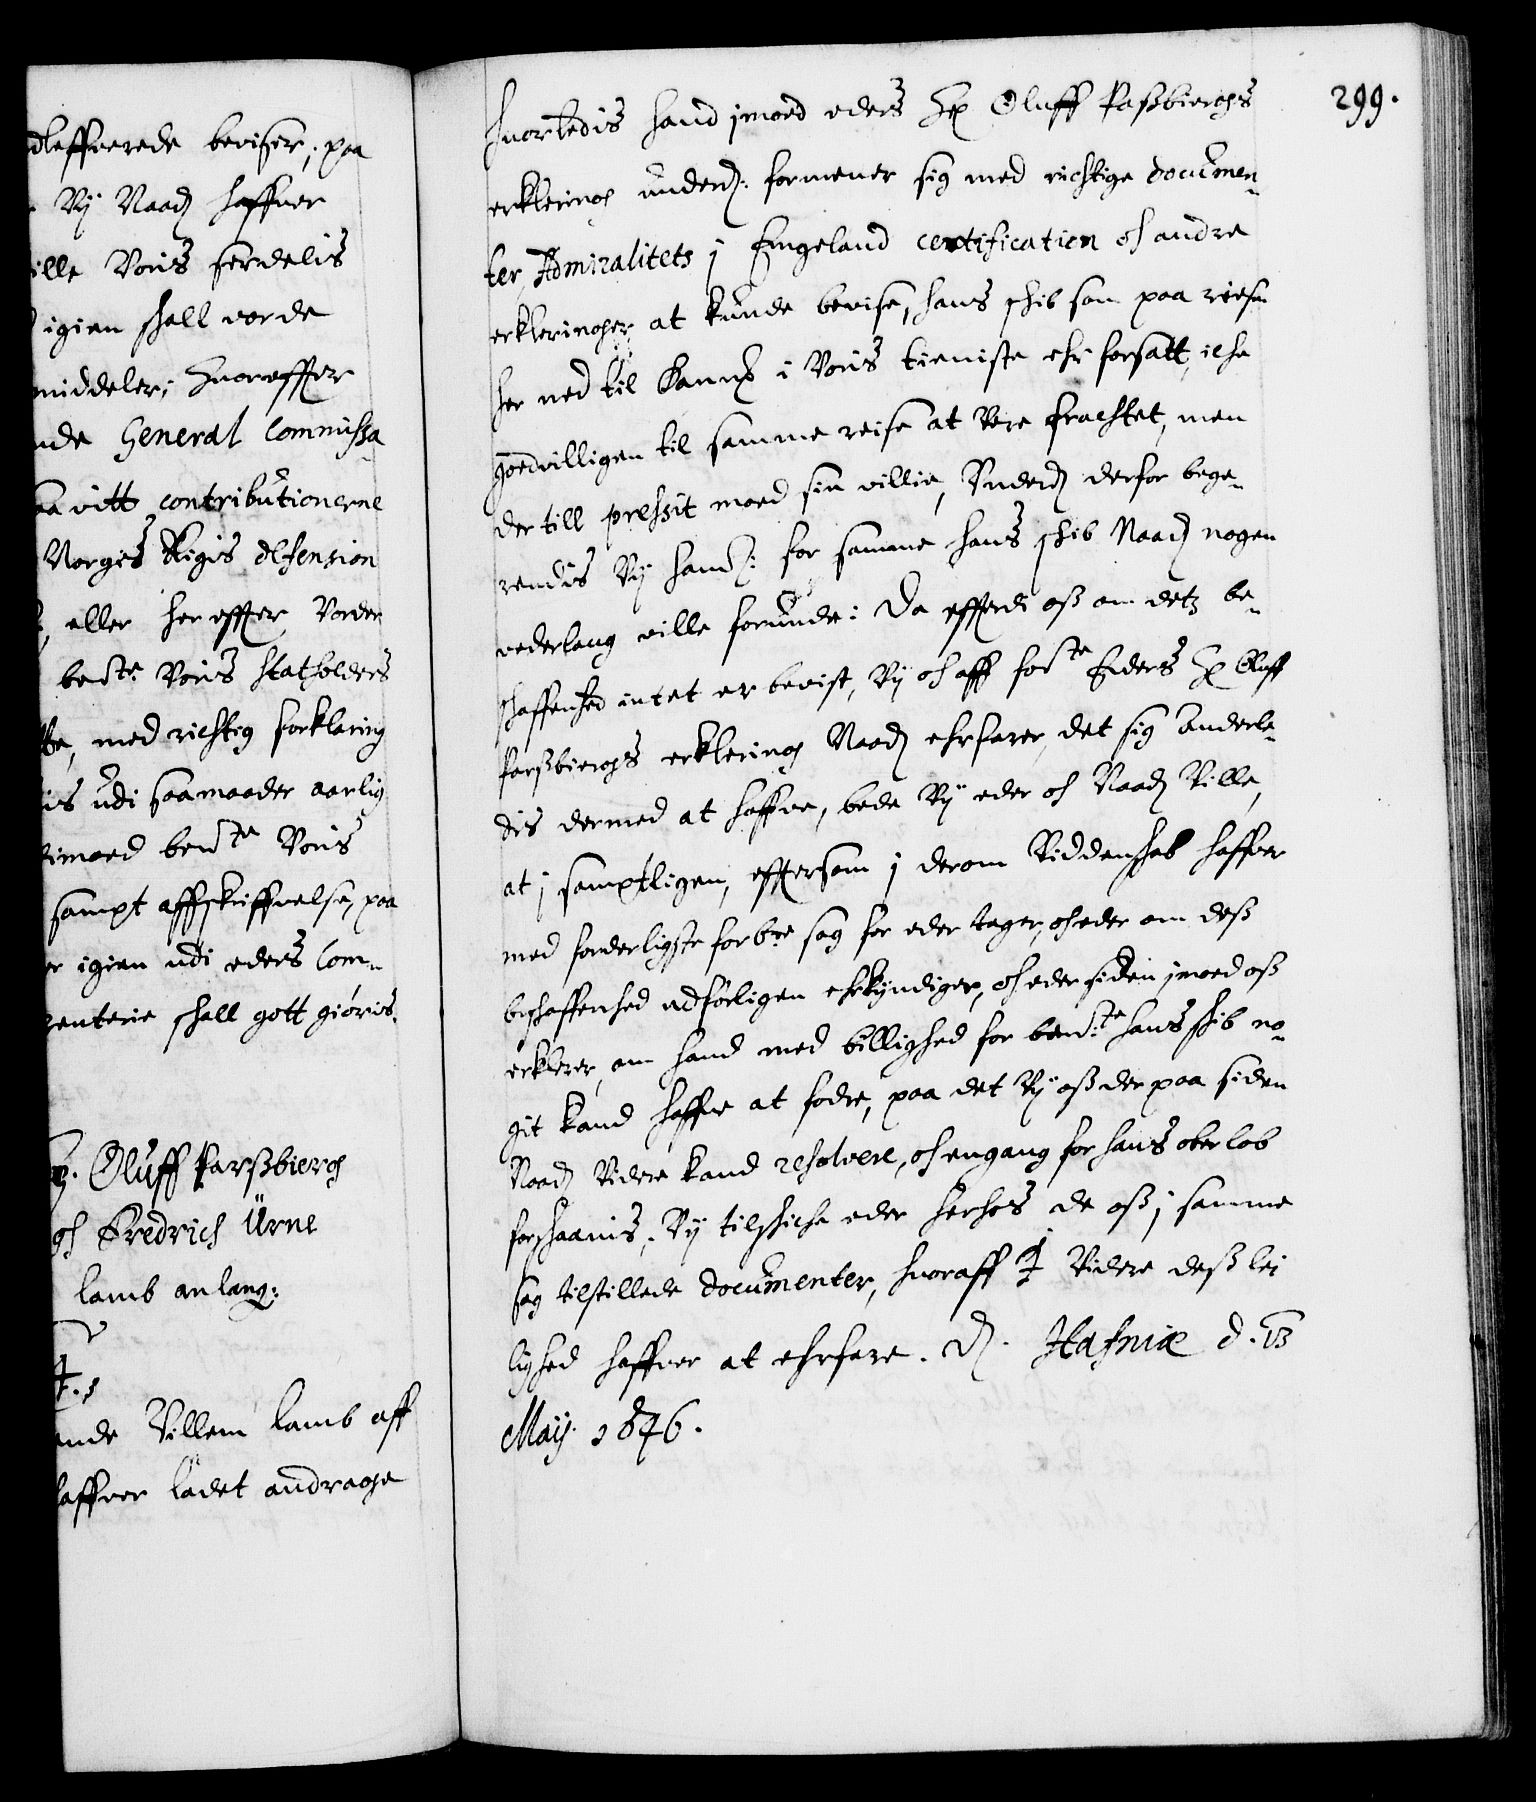 dleffverede beviser, paa
Vij Naad: haffver
ille Voris serdelis
igien skall vorde
middeler, Hvoreffter
nde General Commissa
aa vitt contributionerne
Norgis Rigis defension
eller her effter Vorder
bente Voris Statholders
med richtig forklaring
is udi saamaader aarlig
imoed bente Voris
sampt affskriffvelse, paa
er igien udi eders Com-
renterie skall gott giöris.
Oluff Parssbierg
och Fredrich Ürne
lamb anlang:
ende Villem lamb aff
haffver ladet andrage
299.
hvorledis hand imoed eders H: Oluff Passbiergs
erklering underd: formener sig med richtige documen-
ter, Admiralitets j Engeland certification och andre
erklæringer at kunde bevise, hans skib som paa reisen
her ned til Danm: i Voris tieniste ehr forsatt, iche
goedvilligen til samme reise at Vere frachtet, men
der till pressit moed sin villie, Underd: derfor bege-
rendis Vij ham: for samme hans skib Naad: nogen
vederlaug ville forunde: Da efftherdi oss om detz be-
skaffenhed intet er bevist, Vij och aff forte Eders H: Oluff
Parssbiergs erklering Naad: ehrfarer, det sig anderle-
dis dermed at haffve, bede Vij eder och Naad: Ville,
at j samptligen, effthersom j derom Viddenskab haffver
med forderligste forbre sag for eder tager, och eder om dess
beskaffenhed udförligen erkyndiger, och eder siden imoed oss
erklerer, om hand med billighed for bente hans skib no-
git kand haffve at fodre, paa det Vij oss der paa siden
Naad: Videre kand resolvere, och engang for hans oberlob
forskaanis, Vij tilskiche eder herhos de oss j samme
sag tilstillede documenter, hvoraff j Videre dess lei
lighed haffver at ehrfare. D. Hafniæ d. 13
Maij. 1646.